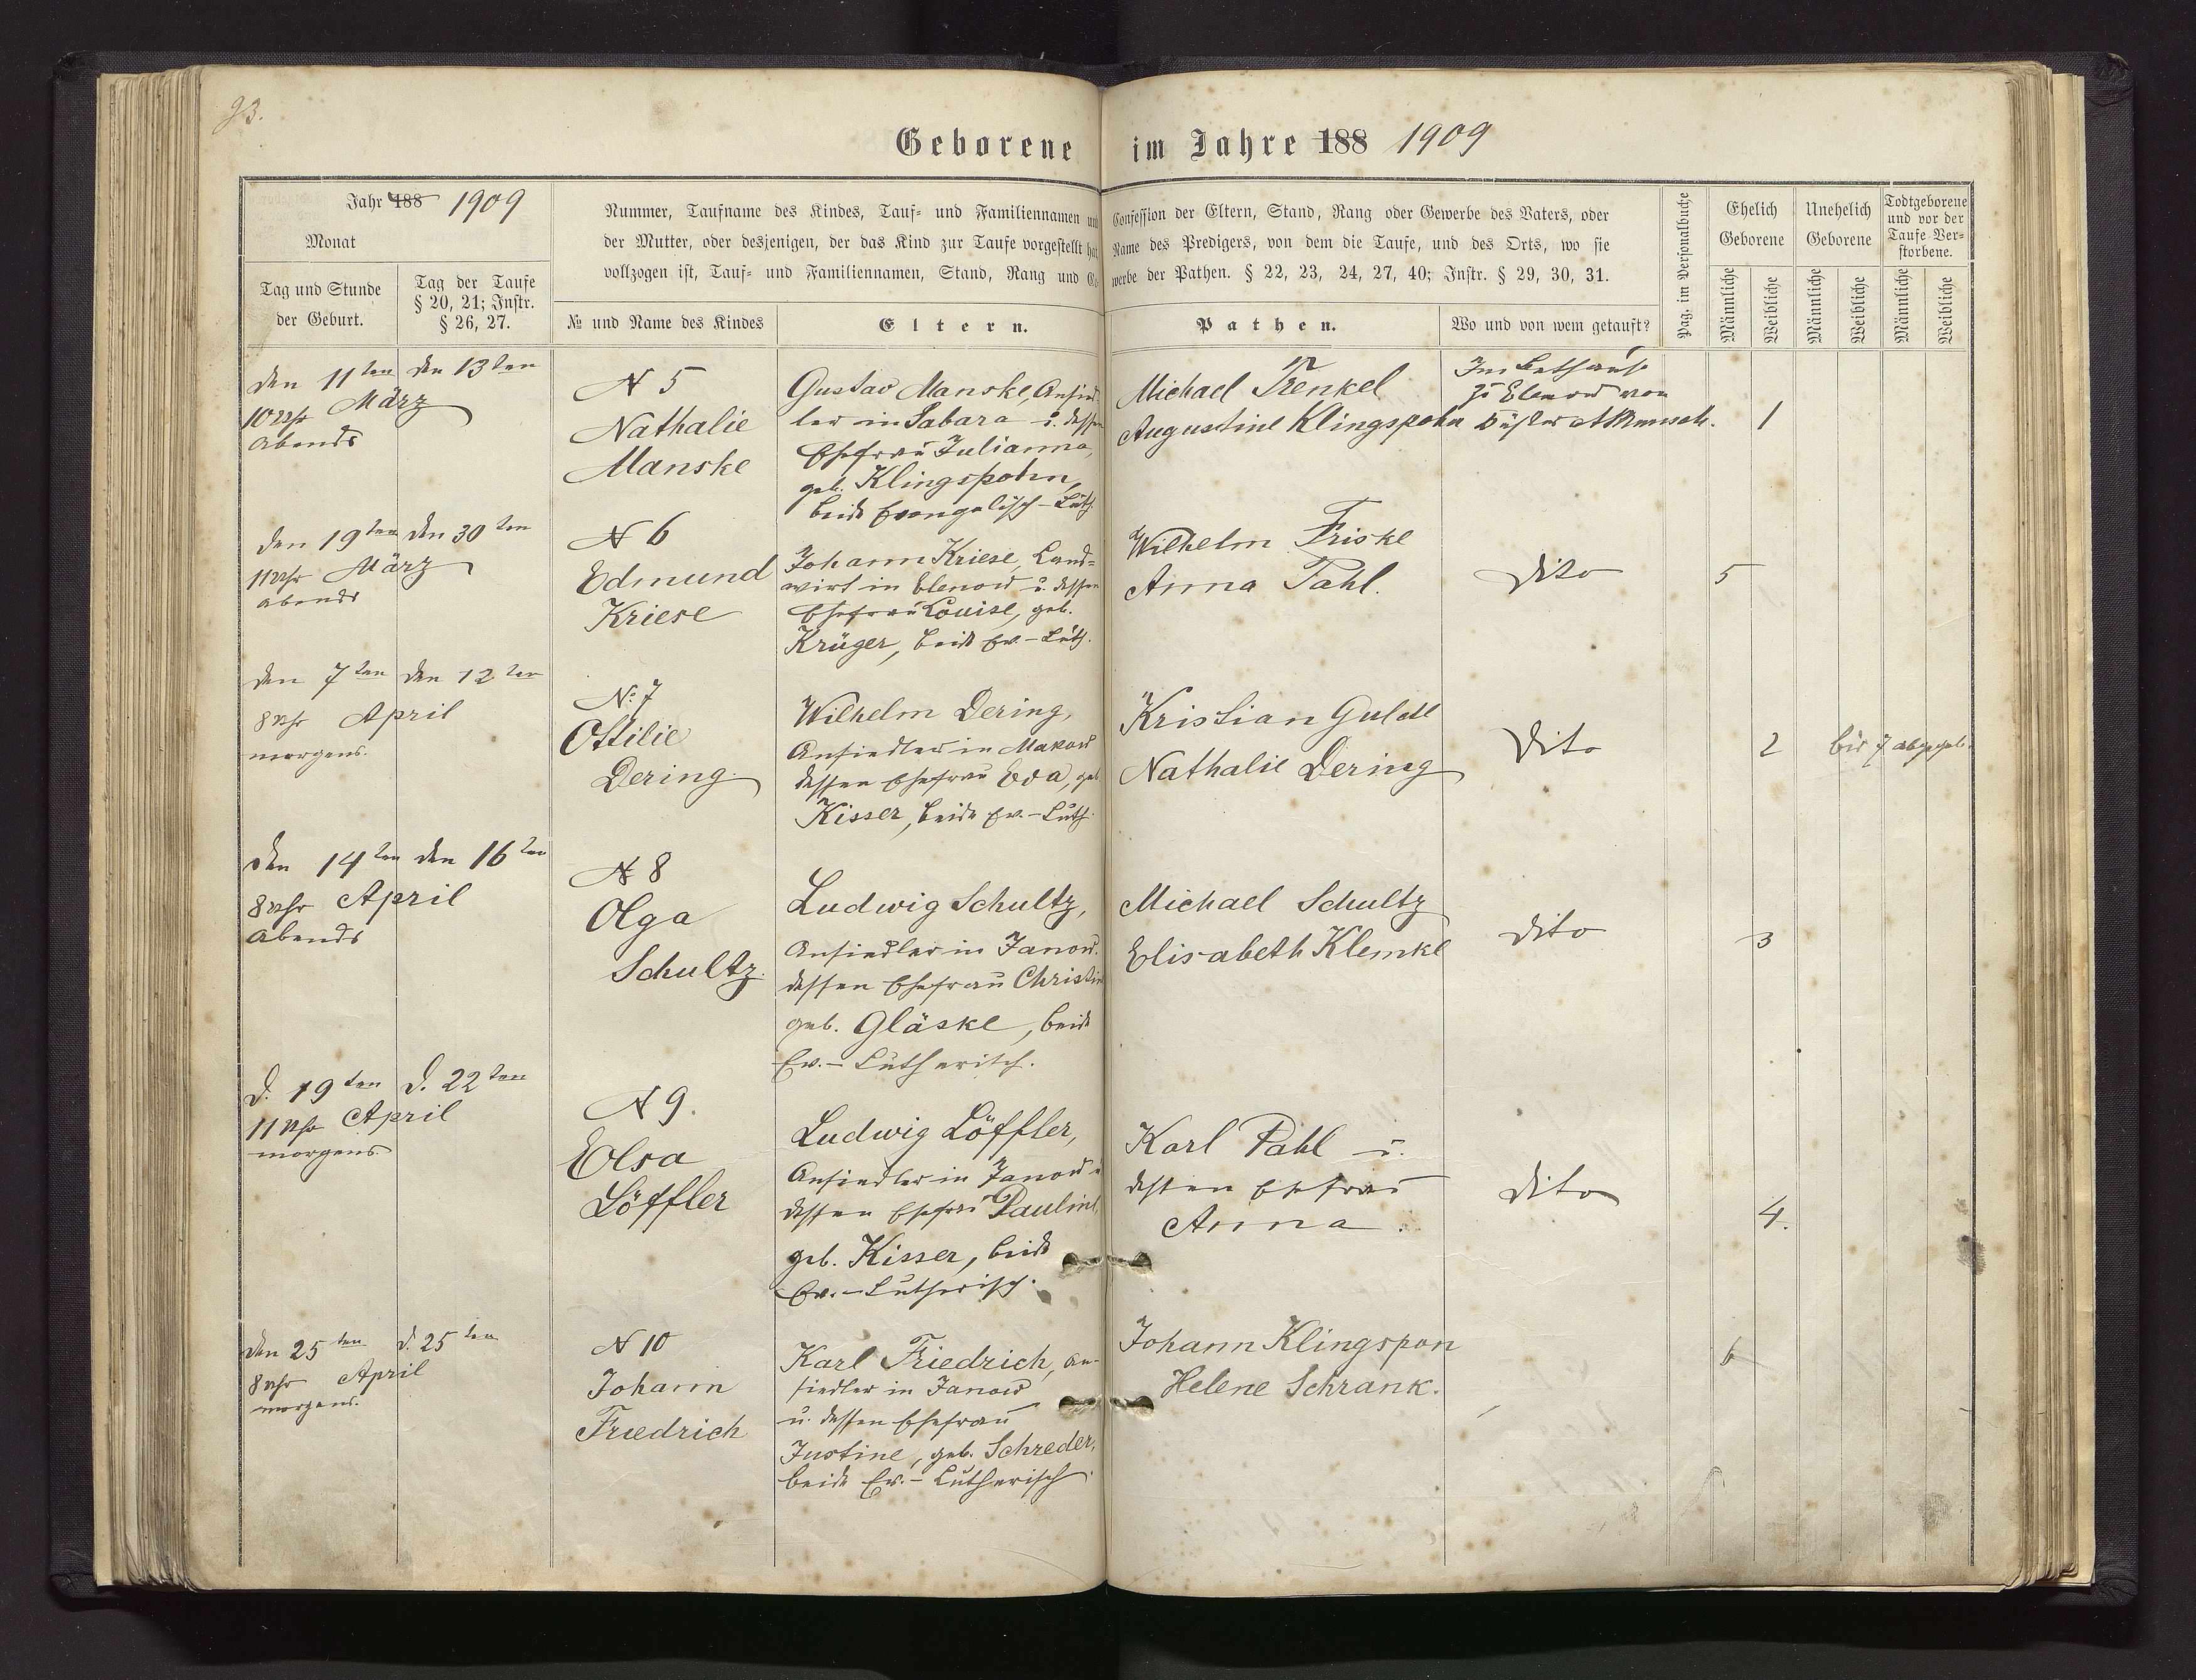 93.
Geborene im Jahre 188 1909
Jahr 188 1909
Monat
Tag und Stunde
der Geburt.
Tag der Taufe
§ 20, 21; Instr.
§ 26, 27.
Nummer, Taufname des Kindes, Tauf- und Familiennamen und
der Mutter, oder desjenigen, der das Kind zur Taufe vorgestellt hat
vollzogen ist, Tauf- und Familiennamen, Stand, Rang und Ge-
№ und Name des Kindes
Eltern.
Confession der Eltern, Stand, Rang oder Gewerbe des Vaters, oder
Name des Predigers, von dem die Taufe, und des Orts, wo sie
werbe der Pathen. § 22, 23, 24, 27, 40; Instr. § 29, 30, 31.
Pathen.
Wo und von wem getauft?
Pag. im Personalbuche
Ehelich
Geborene
Unehelich
Geborene
Todtgeborene
und vor der
Taufe Ver-
storbene.
Männliche
Weibliche
Männliche
Weibliche
Männliche
Weibliche
den 11ten den 13ten
10 Uhr März
abends
N 5
Nathalie
Manske
Gustav Manske, Ansied
ler in Sabara u. dessen
Ehefrau Julianna,
geb. Klingspohn,
beide Evangelisch-Luth.
Michael Trenkel
Augustine Klingspohn
Im Bethause
zu Elenow von
Küster
1
den 19ten den 30ten
11 Uhr März
abends
N 6
Edmund
Kriese
Johann Kriese, Land-
wirt in Elenow u. dessen
Ehefrau Louise, geb.
Krüger, beide Ev.-Luth.
Wilhelm Friske
Anna Pahl.
Dito
5
den 7ten den 12ten
8 Uhr April
morgens.
No 7
Ottilie
Dering.
Wilhelm Dering,
Ansiedler in Makow
dessen Ehefrau Eva, geb
Kisser, beide Ev.-Luth.
Kristian Gulde
Nathalie Dering
Dito
2
bis 7 abgegeb.
den 14ten den 16ten
8 Uhr April
abends
N 8
Olga
Schultz.
Ludwig Schultz,
Ansiedler in Janow.
dessen Ehefrau Christine
geb. Gläske, beide
Ev.-Lutherisch.
Michael Schultz
Elisabeth Klemke
Dito
3
d. 19ten d. 22ten
11 Uhr April
morgens
N 9.
Elsa
Löffler
Ludwig Löffler,
Ansiedler in Janow u
dessen Ehefrau Pauline,
geb. Kisser, beide
Ev.-Lutherisch.
Karl Pahl u.
dessen Ehefrau
Anna.
Dito
4.
den 25ten d. 25ten
8 Uhr April
morgens.
N 10
Johann
Friedrich
Karl Friedrich, An-
siedler in Janow
u. dessen Ehefrau
Justine, geb. Schreder,
beide Ev.-Lutherisch.
Johann Klingspon
Helene Schrank.
6